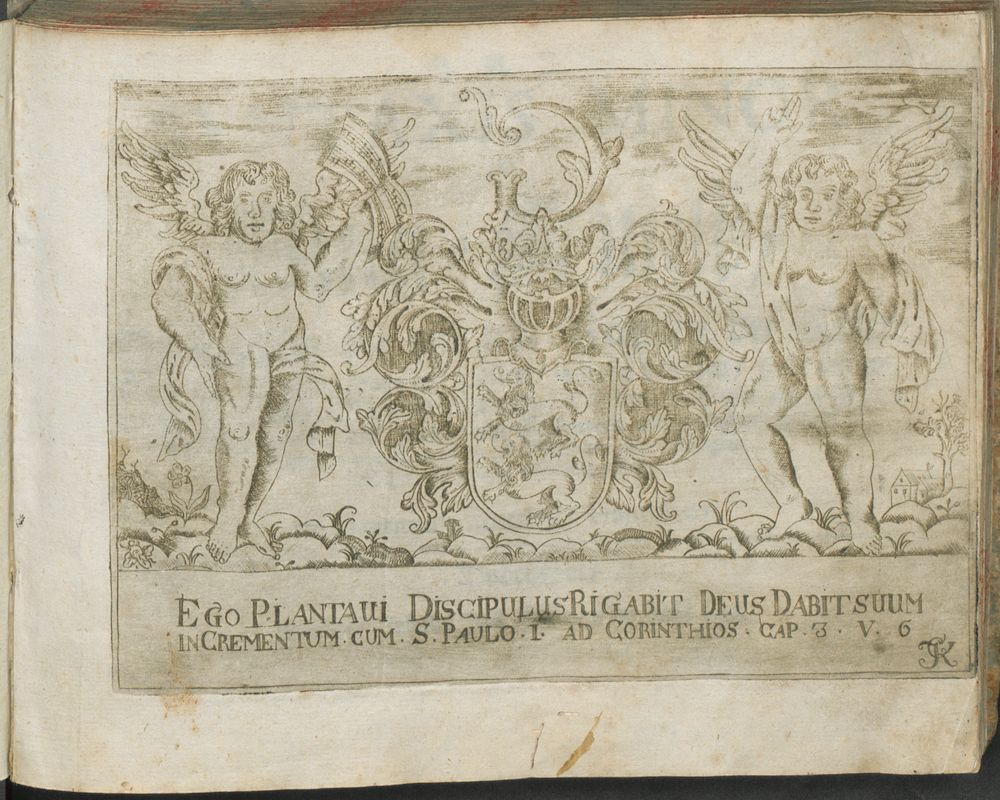 EGO PLANTAUI DISCIPULUS RIGABIT DEUS DABIT SUUM
INCREMENTUM . CUM . S . PAULO . I . AD CORINTHIOS . CAP . 3 . V . 6